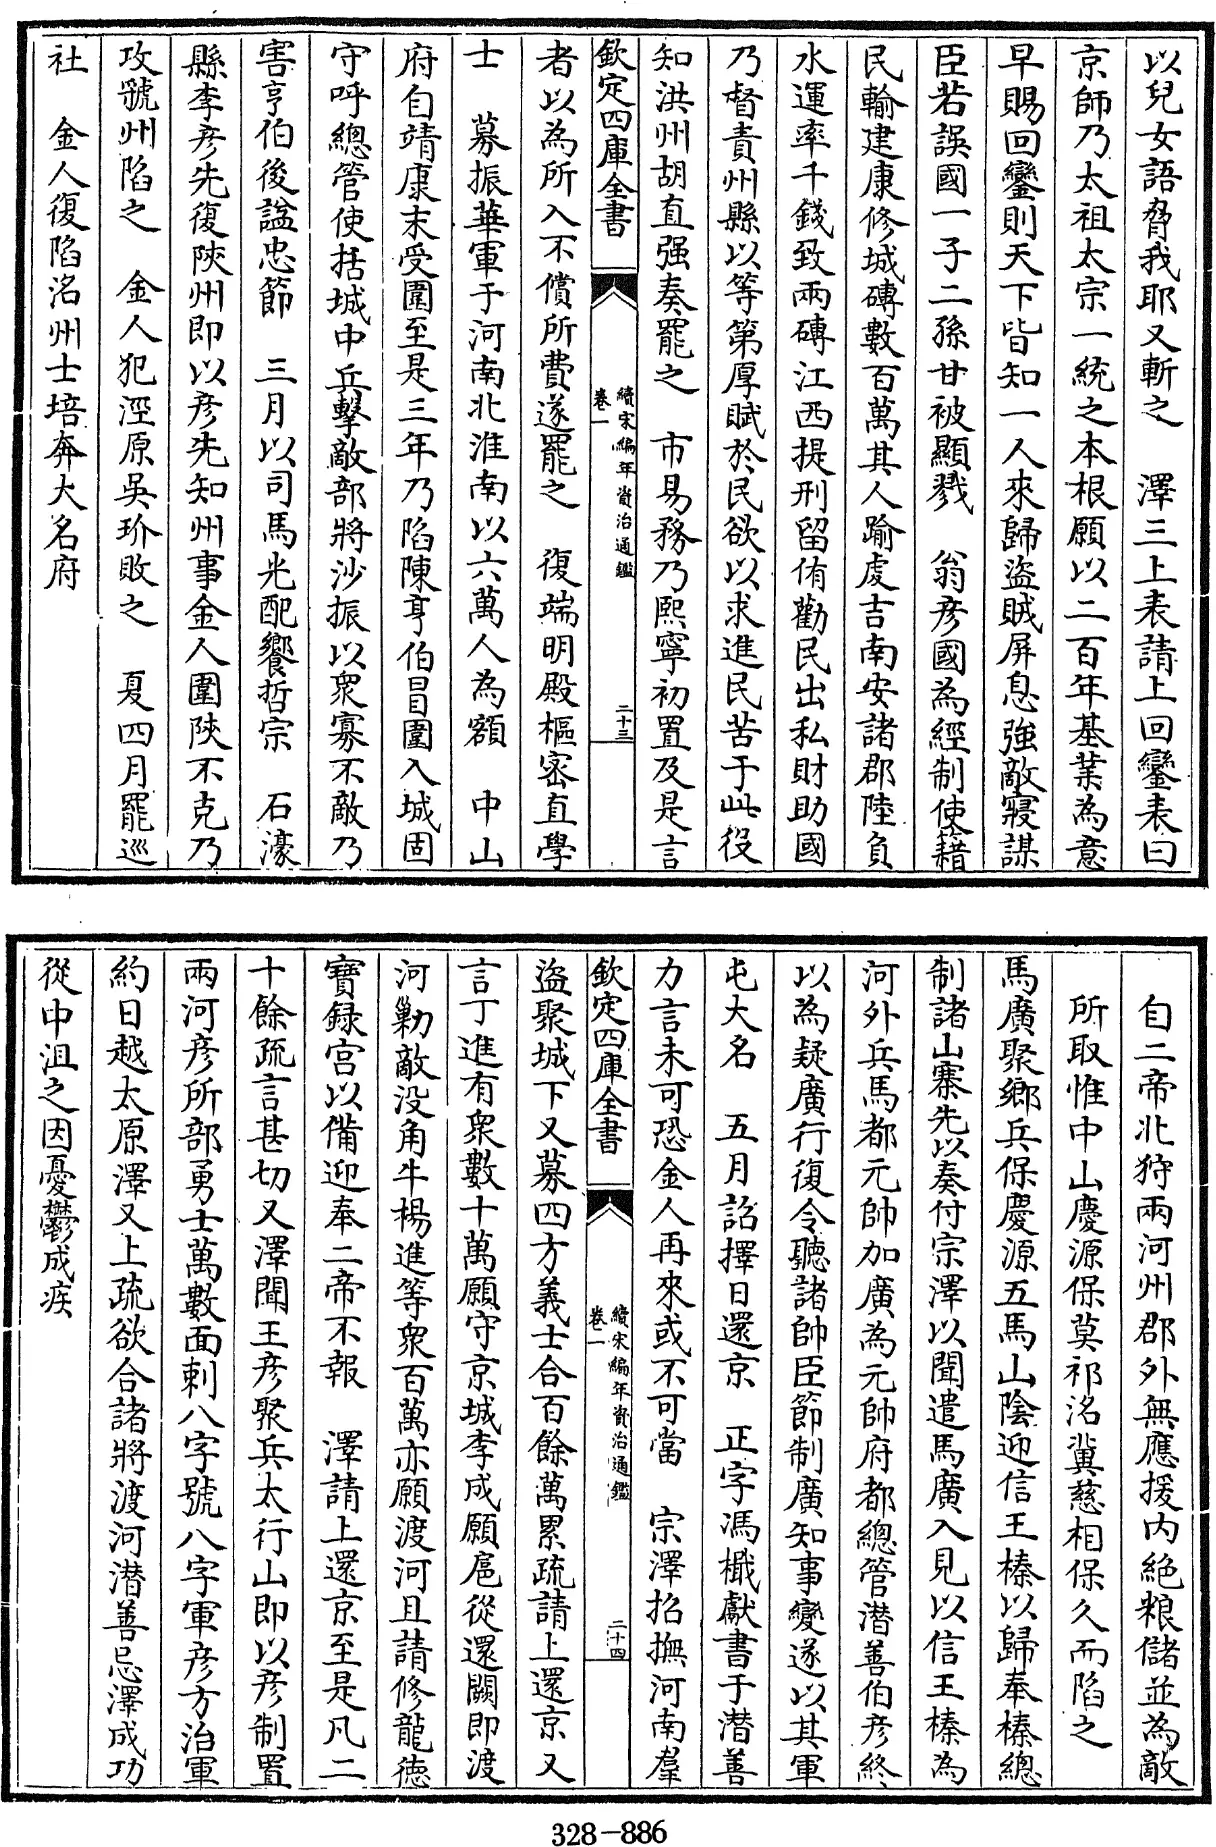 以兒女語脅我耶又斬之　澤三上表請上回鑾表曰
京師乃太祖太宗一統之本根願以二百年基業為意
早賜回鑾則天下皆知一人來歸盜賊屏息強敵寢謀
臣若誤國一子二孫甘被顯戮　翁彦國為經制使籍
民輸建康修城磚數百萬其人踰處吉南安諸郡陸負
水運率千錢致兩磚江西提刑留侑勸民出私財助國
乃督責州縣以等第厚賦於民欲以求進民苦于此役
知洪州胡直强奏罷之　市易務乃熙寧初置及是言
欽定四庫全書
續宋編年資治通鑑
卷一
二十三
者以為所入不償所費遂罷之　復端明殿樞密直學
士　募振華軍于河南北淮南以六萬人為額　中山
府自靖康末受圍至是三年乃陷陳亨伯冒圍入城固
守呼總管使括城中兵擊敵部將沙振以衆寡不敵乃
害亨伯後諡忠節　三月以司馬光配饗哲宗　石濠
縣李彦先復陜州即以彦先知州事金人圍陜不克乃
攻虢州陷之　金人犯涇原吳玠敗之　夏四月罷巡
社　金人復陷洺州士培奔大名府
自二帝北狩兩河州郡外無應援内絶粮儲並為敵
所取惟中山慶源保莫祁洺冀慈相保久而陷之
馬廣聚鄉兵保慶源五馬山陰迎信王榛以歸奉榛總
制諸山寨先以奏付宗澤以聞遣馬廣入見以信王榛為
河外兵馬都元帥加廣為元帥府都總管潛善伯彦終
以為疑廣行復令聽諸帥臣節制廣知事變遂以其軍
屯大名　五月詔擇日還京　正字馮檝獻書于潛善
力言未可恐金人再來或不可當　宗澤招撫河南羣
欽定四庫全書
續宋編年資治通鑑
卷一
二十四
盜聚城下又募四方義士合百餘萬累疏請上還京又
言丁進有衆數十萬願守京城李成願扈從還闕即渡
河勦敵没角牛楊進等衆百萬亦願渡河且請修龍德
寶録宫以備迎奉二帝不報　澤請上還京至是凡二
十餘疏言甚切又澤聞王彦聚兵太行山即以彦制置
兩河彦所部勇士萬數面刺八字號八字軍彦方治軍
約日越太原澤又上疏欲合諸將渡河潛善忌澤成功
從中沮之因憂鬱成疾
328-886